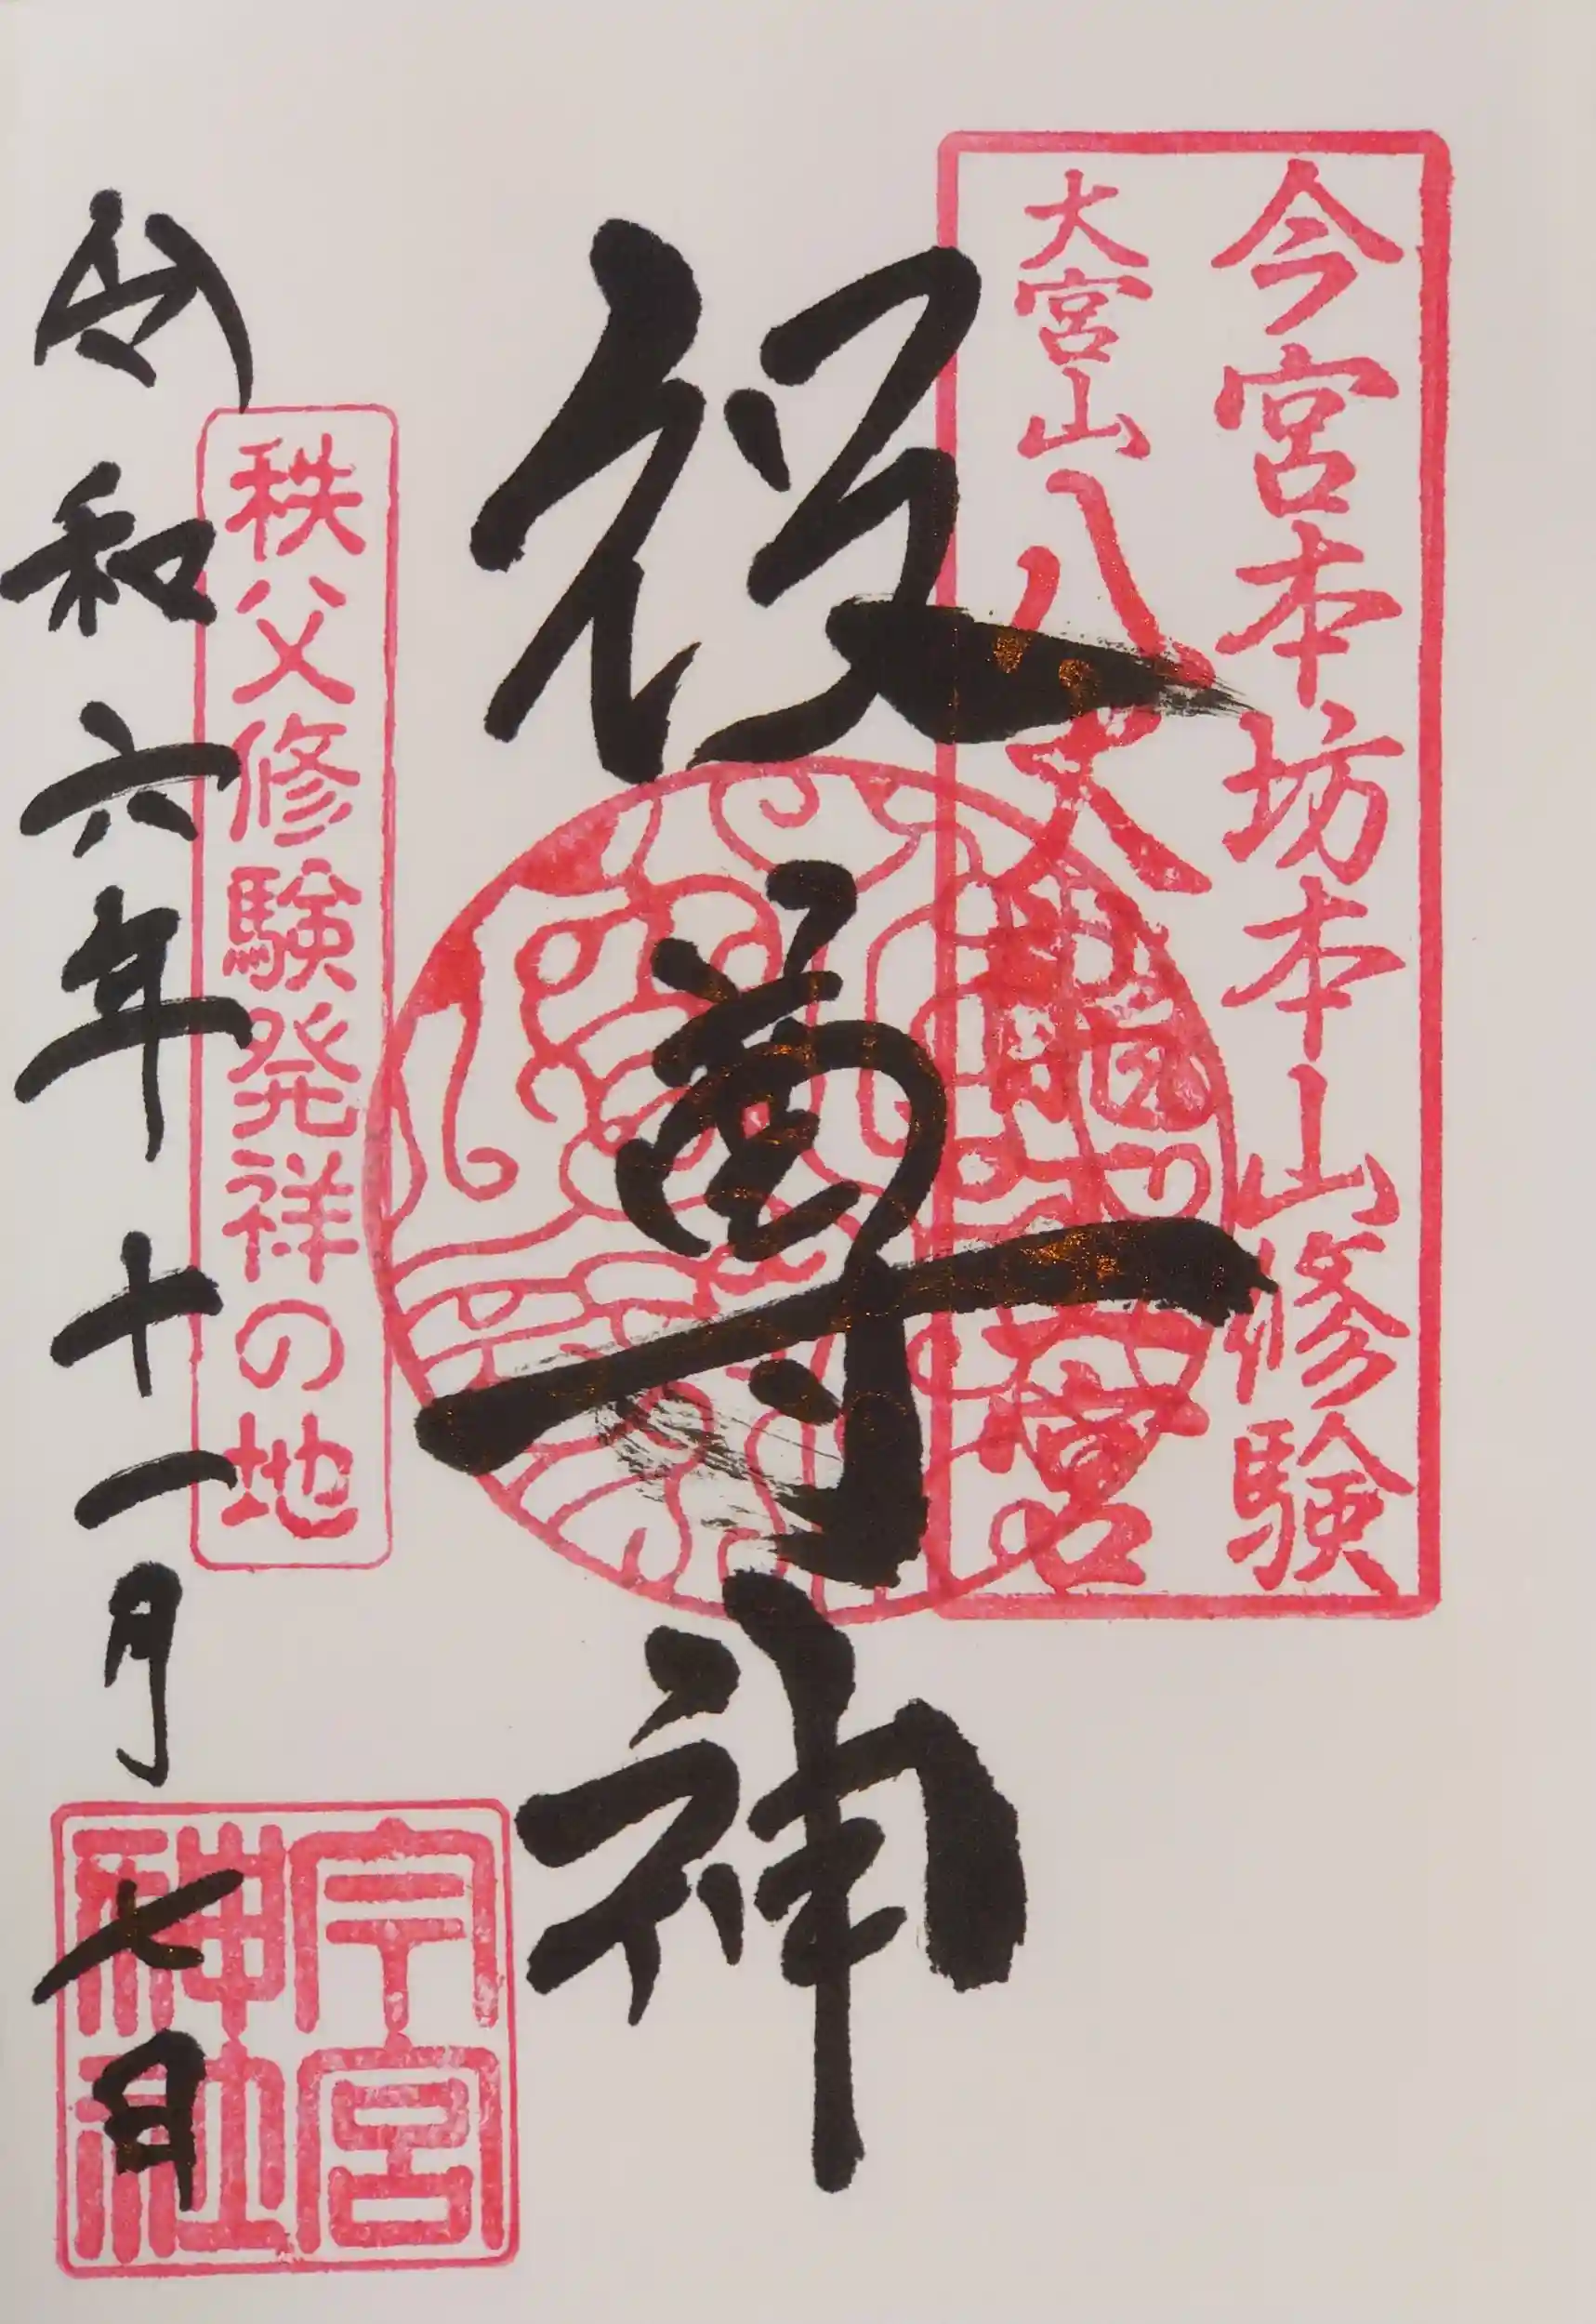 今宮本坊本山修験
大宮山八大龍王宮
役尊神
秩父修験発祥の地
令和六年十一月七日
今宮
神社